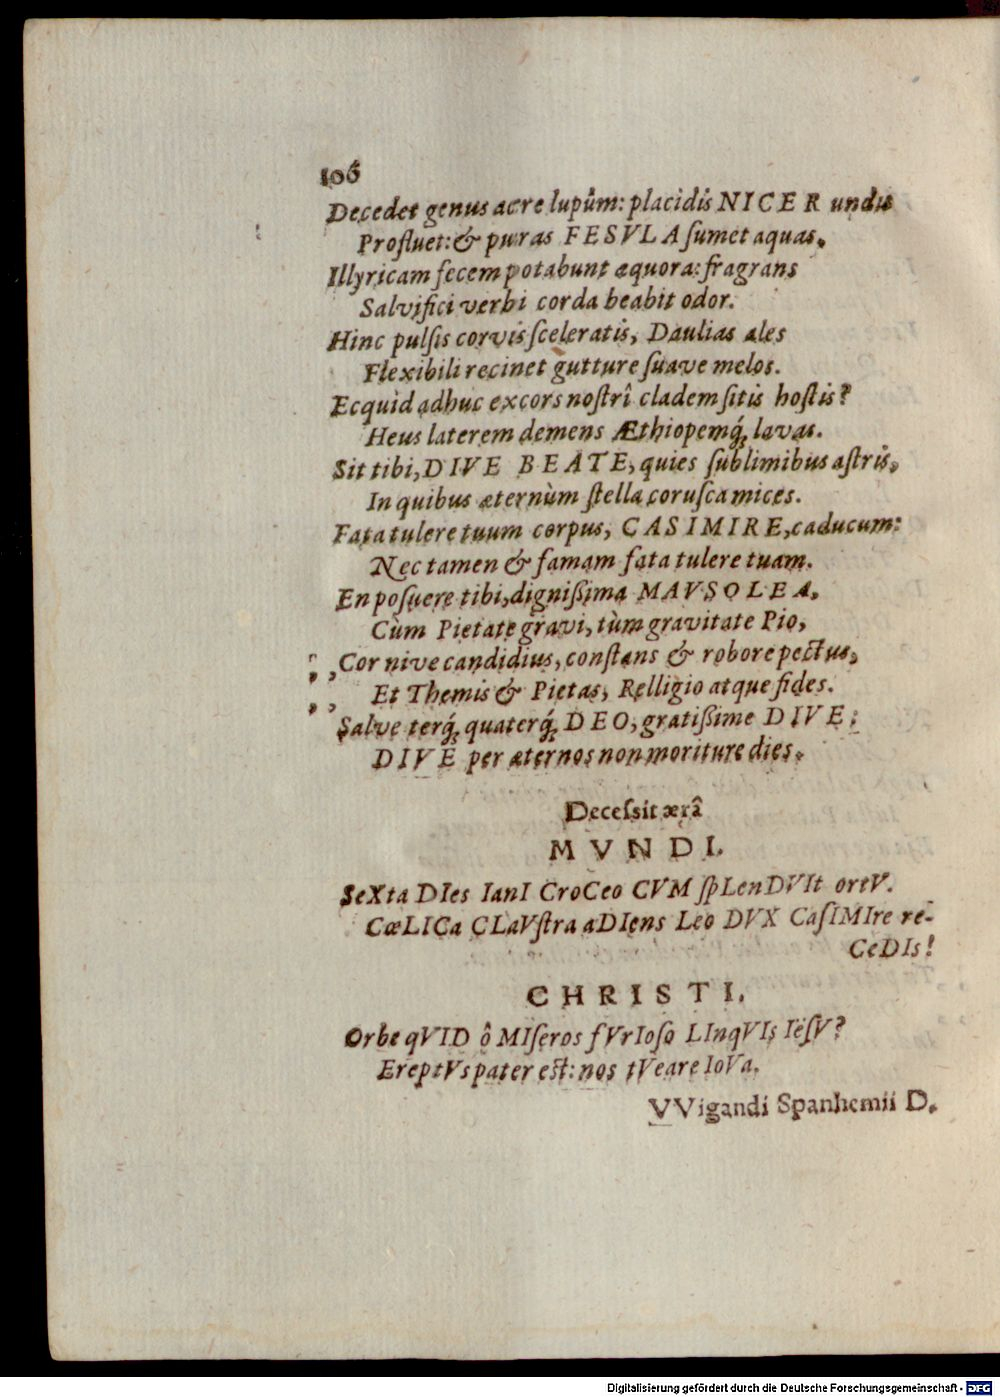 106
Decedet genus acre lupûm: placidis NICER undis
Profluet: & puras FESVLA sumet aquas.
Illyricam fecem potabunt æquora: fragrans
Salvifici verbi corda beabit odor.
Hinc pulsis corvis sceleratis, Daulias ales
Flexibili recinet gutture suave melos.
Ecquid adhuc excors nostrî cladem sitis hostis?
Heus laterem demens Æthiopemq́; lavas.
Sit tibi, DIVE BEATE, quies sublimibus astris,
In quibus æternùm stella corusca mices.
Fata tulere tuum corpus, CASIMIRE, caducum:
Nec tamen & famam fata tulere tuam.
En posuere tibi, dignißima MAVSOLEA,
Cùm Pietate gravi, tùm gravitate Pio,
,, Cor nive candidius, constans & robore pectus,
,, Et Themis & Pietas, Relligio atque fides.
Salve terq́; quaterq́; DEO, gratißime DIVE:
DIVE per æternos non moriture dies.
Decessit ærâ
MVNDI.
SeXta DIes IanI CroCeo CVM spLenDVIt ortV.
CœLICa CLaVstra aDIens Leo DVX CasIMIre re-
CeDIs!
CHRISTI.
Orbe qVID ô MIseros fVrIoso LInqVIs IesV?
EreptVs pater est: nos tVeare IoVa.
VVigandi Spanhemii D.
Digitalisierung gefördert durch die Deutsche Forschungsgemeinschaft - DFG